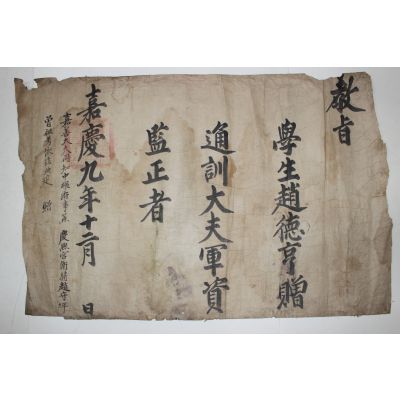 敎旨
學生趙德亨贈
通訓大夫軍資
監正者
嘉慶九年十二月 日
嘉善大夫同知中樞府事兼 慶熙宮衛將趙守
曾祖考依法典 贈